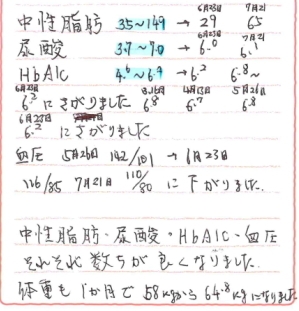 6月23日 7月21
中性脂肪 35~149 → 29 65
6月23日 7月21
尿酸 3.7~7.0 → 6.0 6.1
HbA1c 4.6~6.9 → 6.2 6.8~
6月23日 3.16日 4月13日 5月26日
6.2 にさがりました 6.8 6.7 6.8
6月23日
6.2 にさがりました
血圧 5月26日 142/101 → 6月23日
126/85 7月21日 110/80 に下がりました。
中性脂肪・尿酸・HbA1c・血圧
それぞれ数ちが良くなりました。
体重も1か月で 58kgから 64.8kgになりました